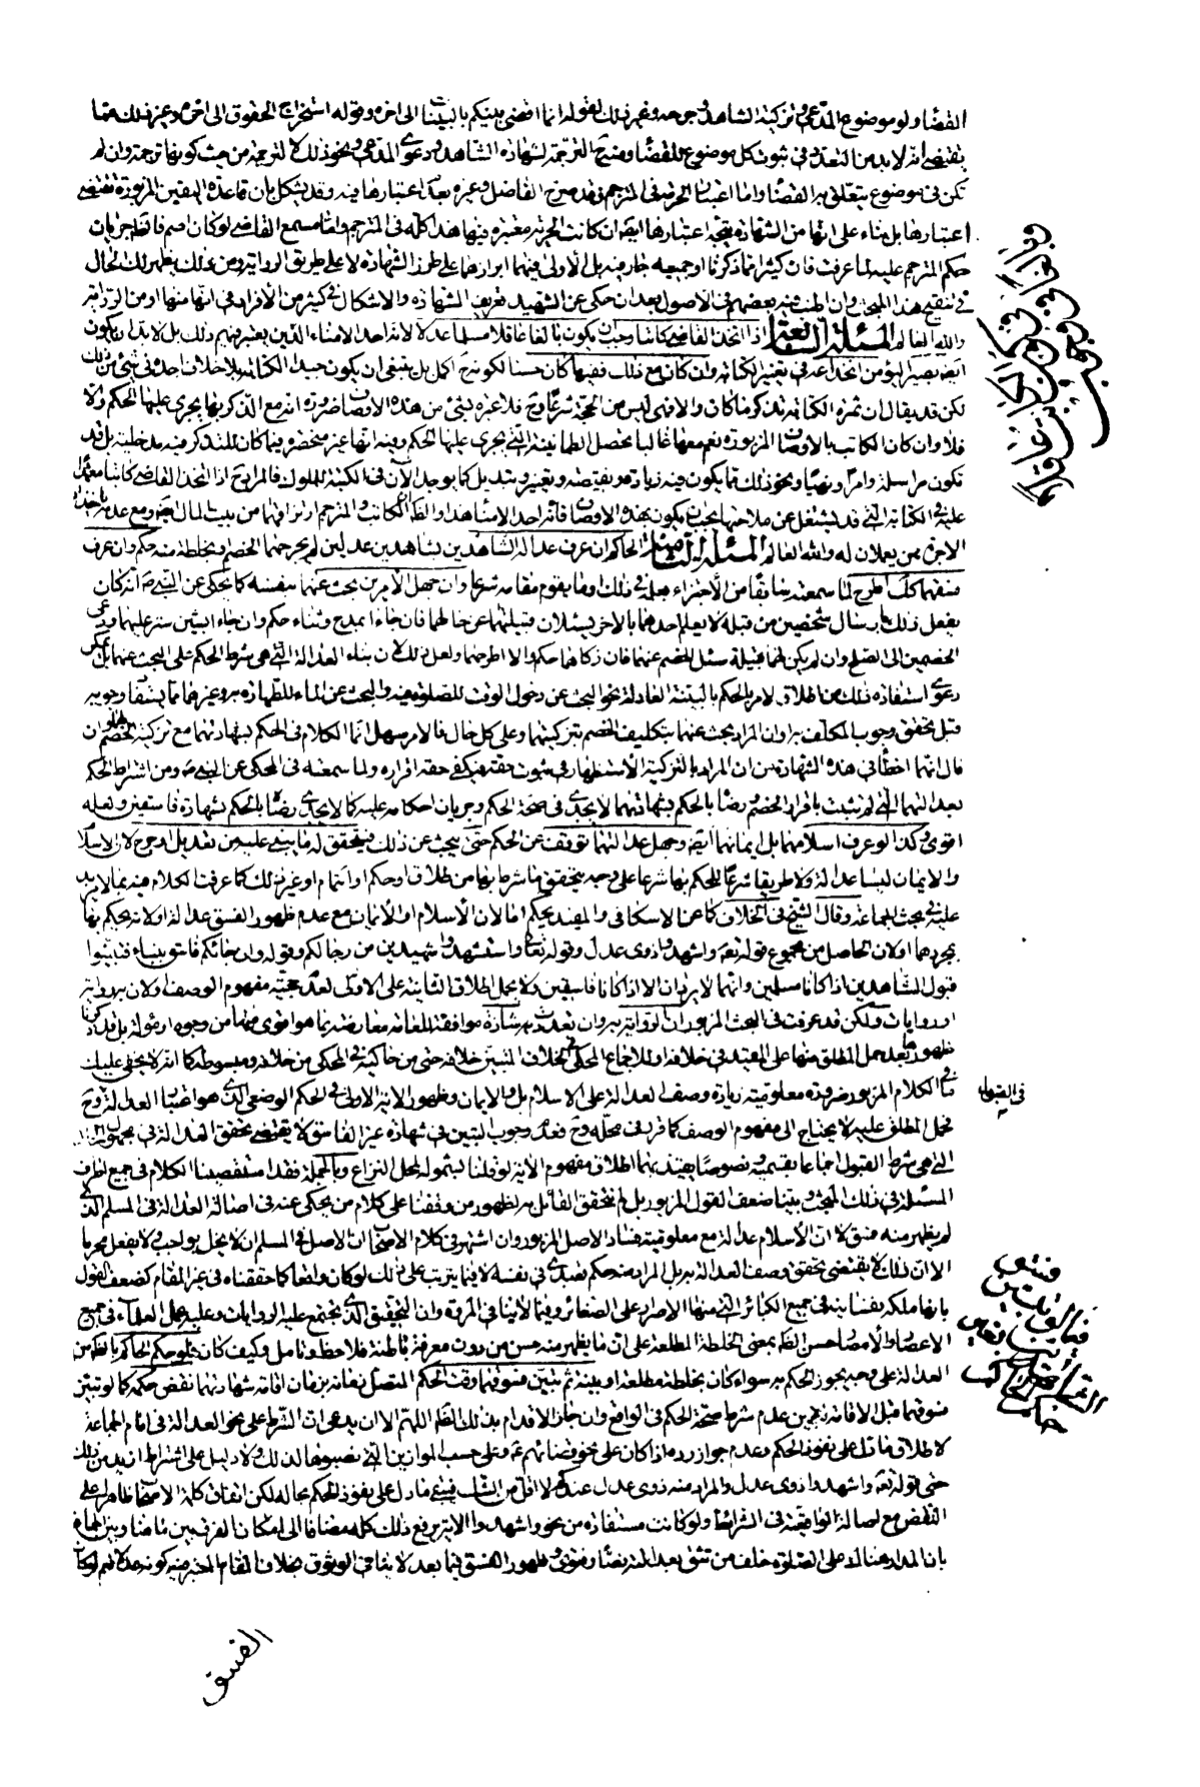 القضاء ولو موضوع المدعى وتزكية الشاهد وجرحه وغير ذلك لقوله انما اقضى بينكم بالبينات الى اخره وقوله استخراج الحقوق الى اخره وغير ذلك مما
يقتضى انه لا بد من التعدد فى ثبوت كل موضوع للقضاء ومنه الترجمة لشهادة الشاهد ودعوى المدعى ونحو ذلك لا الترجمة من حيث كونها ترجمة وان لم
تكن فى موضوع يتعلق به القضاء واما اعتبار الحرية فى المترجم فقد صرح الفاضل وغيره بعدم اعتبارها فيه وقد يشكل بان قاعدة اليقين المزبورة تقتضى
اعتبارها بل بناء على انها من الشهادة يتجه اعتبارها ايضا ان كانت الحرية معتبرة فيها هذا كله فى المترجم واما مسمع القاضى لو كان اصم فالظاهر جريان
حكم المترجم عليه لما عرفت فان كثيرا مما ذكرنا او جميعه جار فيه بل الاولى فيهما ابرازهما على طرز الشهادة لا على طريق الرواية ومن ذلك يظهر لك الحال
فى تنقيح هذا المبحث وان اطنب فيه بعضهم فى الاصول بعد ان حكى عن الشهيد تعريف الشهادة والاشكال فى كثير من الافراد فى انها منها او من الرواية
والله العالم المسئلة السابعة اذا اتخذ القاضى كاتبا وجب ان يكون بالغا عاقلا مسلما عدلا لانه احد الامناء الذين يعتبر فيهم ذلك بل لا بد ان يكون
ايضا بصيرا ليؤمن انخداعه فى تغيير الكتابة وان كان مع ذلك فقيها كان حسنا لكونه ح اكمل بل ينبغى ان يكون جيد الكتابة بلا خلاف اجده فى شىء من ذلك
لكن قد يقال ان ثمرة الكتابة تذكر ما كان والا فهى ليس من الحجة شرعا وح فلا عبرة بشىء من هذه الاوصاف ضرورة انه مع الذكر بها يجرى عليها الحكم والا
فلا وان كان الكاتب بالاوصاف المزبورة نعم معها غالبا تحصل الطمانينة التى يجرى عليها الحكم وفيه انها غير منحصرة فيما كان للتذكر فيه مدخلية بل قد
تكون مراسلة وامرا ونهيا ونحو ذلك مما يكون فيه زيادة ونقيصة وتغيير وتبديل كما يوجد الآن فى الكتبة للملوك فالمراد ح اذا اتخذ القاضى كاتبا معتمدا
عليه فى الكتابة التى قد يشتغل عن ملاحظتها يجب ان يكون بهذه الاوصاف فانه احد الامناء هذا والظاهر ان الكاتب والمترجم ارتزاقهما من بيت المال ايضا ومع عدمه ياخذان
الاجرة ممن يعملان له والله العالم المسئلة الثامنة الحاكم ان عرف عدالة الشاهدين بشاهدين عدلين لم يجرحهما الخصم او بخلطة منه حكم وان عرف
فسقهما كك اطرح لما سمعته سابقا من الاجتزاء بعلمه فى ذلك وما يقوم مقامه شرعا وان جهل الامرين بحث عنهما بنفسه كما يحكى عن النبى ص انه كان
يفعل ذلك بارسال شخصين من قبله لا يعلم احدهما بالاخر يسئلان قبيلتهما عن حالهما فان جاءا بمدح وثناء حكم وان جاءا بشين ستر عليهما ودعى
الخصمين الى الصلح وان لم يكن لهما قبيلة سئل الخصم عنهما فان زكاهما حكم والا اطرحهما ولعل ذلك لان بناء العدالة التى هى شرط الحكم على البحث عنها بل يمكن
دعوى استفادة ذلك من اطلاق الامر بالحكم بالبينة العادلة نحو البحث عن دخول الوقت للصلوة فيه والبحث عن الماء للطهارة به وغيرهما مما يستفاد وجوبه
قبل تحقق وجوب المكلف به او ان المراد يبحث عنهما بتكليف الخصم بتزكيتهما وعلى كل حال فالامر سهل انما الكلام فى الحكم بشهادتهما مع تزكية الخصم لهما وان
قال انهما اخطأ فى هذه الشهادة من ان المراد بالتزكية الاستظهار فى ثبوت حقه فيكفى حقه اقراره ولما سمعته فى المحكى عن النبى ص ومن اشتراط الحكم
بعدالتهما التى لم تثبت باقرار الخصم ورضاه بالحكم بشهادتهما لا يجدى فى صحة الحكم وجريان احكامه عليه كما لا يجدى رضاه بالحكم بشهادة فاسقين ولعله
اقوى وكذا لو عرف اسلامهما بل ايمانهما ايضا وجهل عدالتهما توقف عن الحكم حتى يبحث عن ذلك فيتحقق له ما يبنى عليه من تعديل او جرح لان الاسلام
والايمان ليسا عدالة ولا طريقا شرعيا للحكم بها شرعا على وجه يتحقق ما شرط بها من طلاق او حكم او ائتمام او غير ذلك كما عرفت الكلام فيه بما لا مزيد
عليه فى بحث الجماعة وقال الشيخ فى الخلاف كما عن الاسكافى والمفيد يحكم اما لان الاسلام او الايمان مع عدم ظهور الفسق عدالة او لانه يحكم بها
بمجردهما او لان الحاصل من مجموع قوله تعه واشهدوا ذوى عدل وقوله تعالى واستشهدوا شهيدين من رجالكم وقوله وان جائكم فاسق بنباء فتبينوا
قبول الشاهدين اذا كانا مسلمين وانهما لا يردان الا اذا كانا فاسقين ولا محمل اطلاق الثانية على الاولى لعدم حجية مفهوم الوصف او لان به رواية
او روايات ولكن قد عرفت فى البحث المزبور ان الرواية به وان تعددت شاذة موافقة للعامة معارضة بما هو اقوى منها من وجوه او مؤلة بل قد ذكرنا
ظهور ما بعد حمل المطلق منها على المقيد فى خلافه وللاجماع المحكى فى الخلاف المتبين خلافه حتى من حاكيه فى المحكى من خلافه ومبسوطه كما انه لا يخفى عليك
ما فى الكلام المزبور ضرورة معلومية زيادة وصف العدالة على الاسلام بل والايمان وظهور الاية الاولى فى الحكم الوضعى الذى هو اعتبار العدالة وح
فحمل المطلق عليه لا يحتاج الى مفهوم الوصف كما قرر فى محله وح فعدم وجوب التبين فى شهادة غير الفاسق لا يقتضى تحقق العدالة فى مجهول الحال
التى هى شرط القبول اجماعا بقسميه ونصوصا يقيد بهما اطلاق مفهوم الاية لو قلنا بشموله لمحل النزاع وبالجملة فقد استقصينا الكلام فى جميع اطراف
المسئلة فى ذلك المبحث وبينا ضعف القول المزبور بل لم نتحقق القائل به لظهور من وقفنا على كلام من يحكى عنه فى اصالة العدالة فى المسلم الذى
لم يظهر منه فسق لا ان الاسلام عدالة مع معلومية فساد الاصل المزبور وان اشتهر فى كلام الاصحاب ان الاصل فى المسلم ان لا يخل بواجب ولا يفعل محرما
الا ان ذلك لا يقتضى تحقق وصف العدالة به بل المراد منه حكم تعبدى فى نفسه لا فيما يترتب على ذلك لو كان واقعا كما حققناه فى غير المقام كضعف القول
بانها ملكة نفسانية فى جميع الكبائر التى منها الاصرار على الصغائر وفيما لا ينافى المروة وان التحقيق الذى يجتمع عليه الروايات وعليه عمل العلماء فى جميع
الاعصار والامصار حسن الظاهر بمعنى الخلطة المطلعة على ان ما يظهر منه حسن من دون معرفة باطنه فلاحظ وتامل وكيف كان فلو حكم الحاكم بالظاهر من
العدالة على وجه يجوز الحكم به سواء كان بخلطة مطلعة او بينة ثم تبين فسوقهما وقت الحكم المتصل زمانه بزمان اقامة شهادتهما نقض حكمه كما لو تبين
فسوقهما قبل الاقامة لتبين عدم شرط صحة الحكم فى الواقع وان جاز الاقدام بذلك الظاهر اللهم الا ان يدعى ان الشرط على نحو العدالة فى امام الجماعة
لاطلاق ما دل على نفوذ الحكم وعدم جواز رده اذا كان على نحو قضائهم ع وعلى حسب الموازين التى نصبوها لذلك ولا دليل على اشتراط ازيد من ذلك
حتى قوله تعه واشهدوا ذوى عدل والمراد منه ذوى عدل عندكم لا اقل من الشك فيبقى ما دل على نفوذ الحكم بحاله لكن اتفاق كلمة الاصحاب ظاهرا على
النقض مع اصالة الواقعية فى الشرائط ولو كانت مستفادة من نحو واشهدوا الاية يرفع ذلك كله مضافا الى امكان الفرق بين ما هنا وبين الجماعة
بان المدار هناك على الصلوة خلف من تثق بعدالته رضاء وفتوى وظهور الفسق فيما بعد لا ينافى الوثوق بخلاف المقام المعتبر فيه كونه عدلا نعم لو كان
فى القبول
الفسق